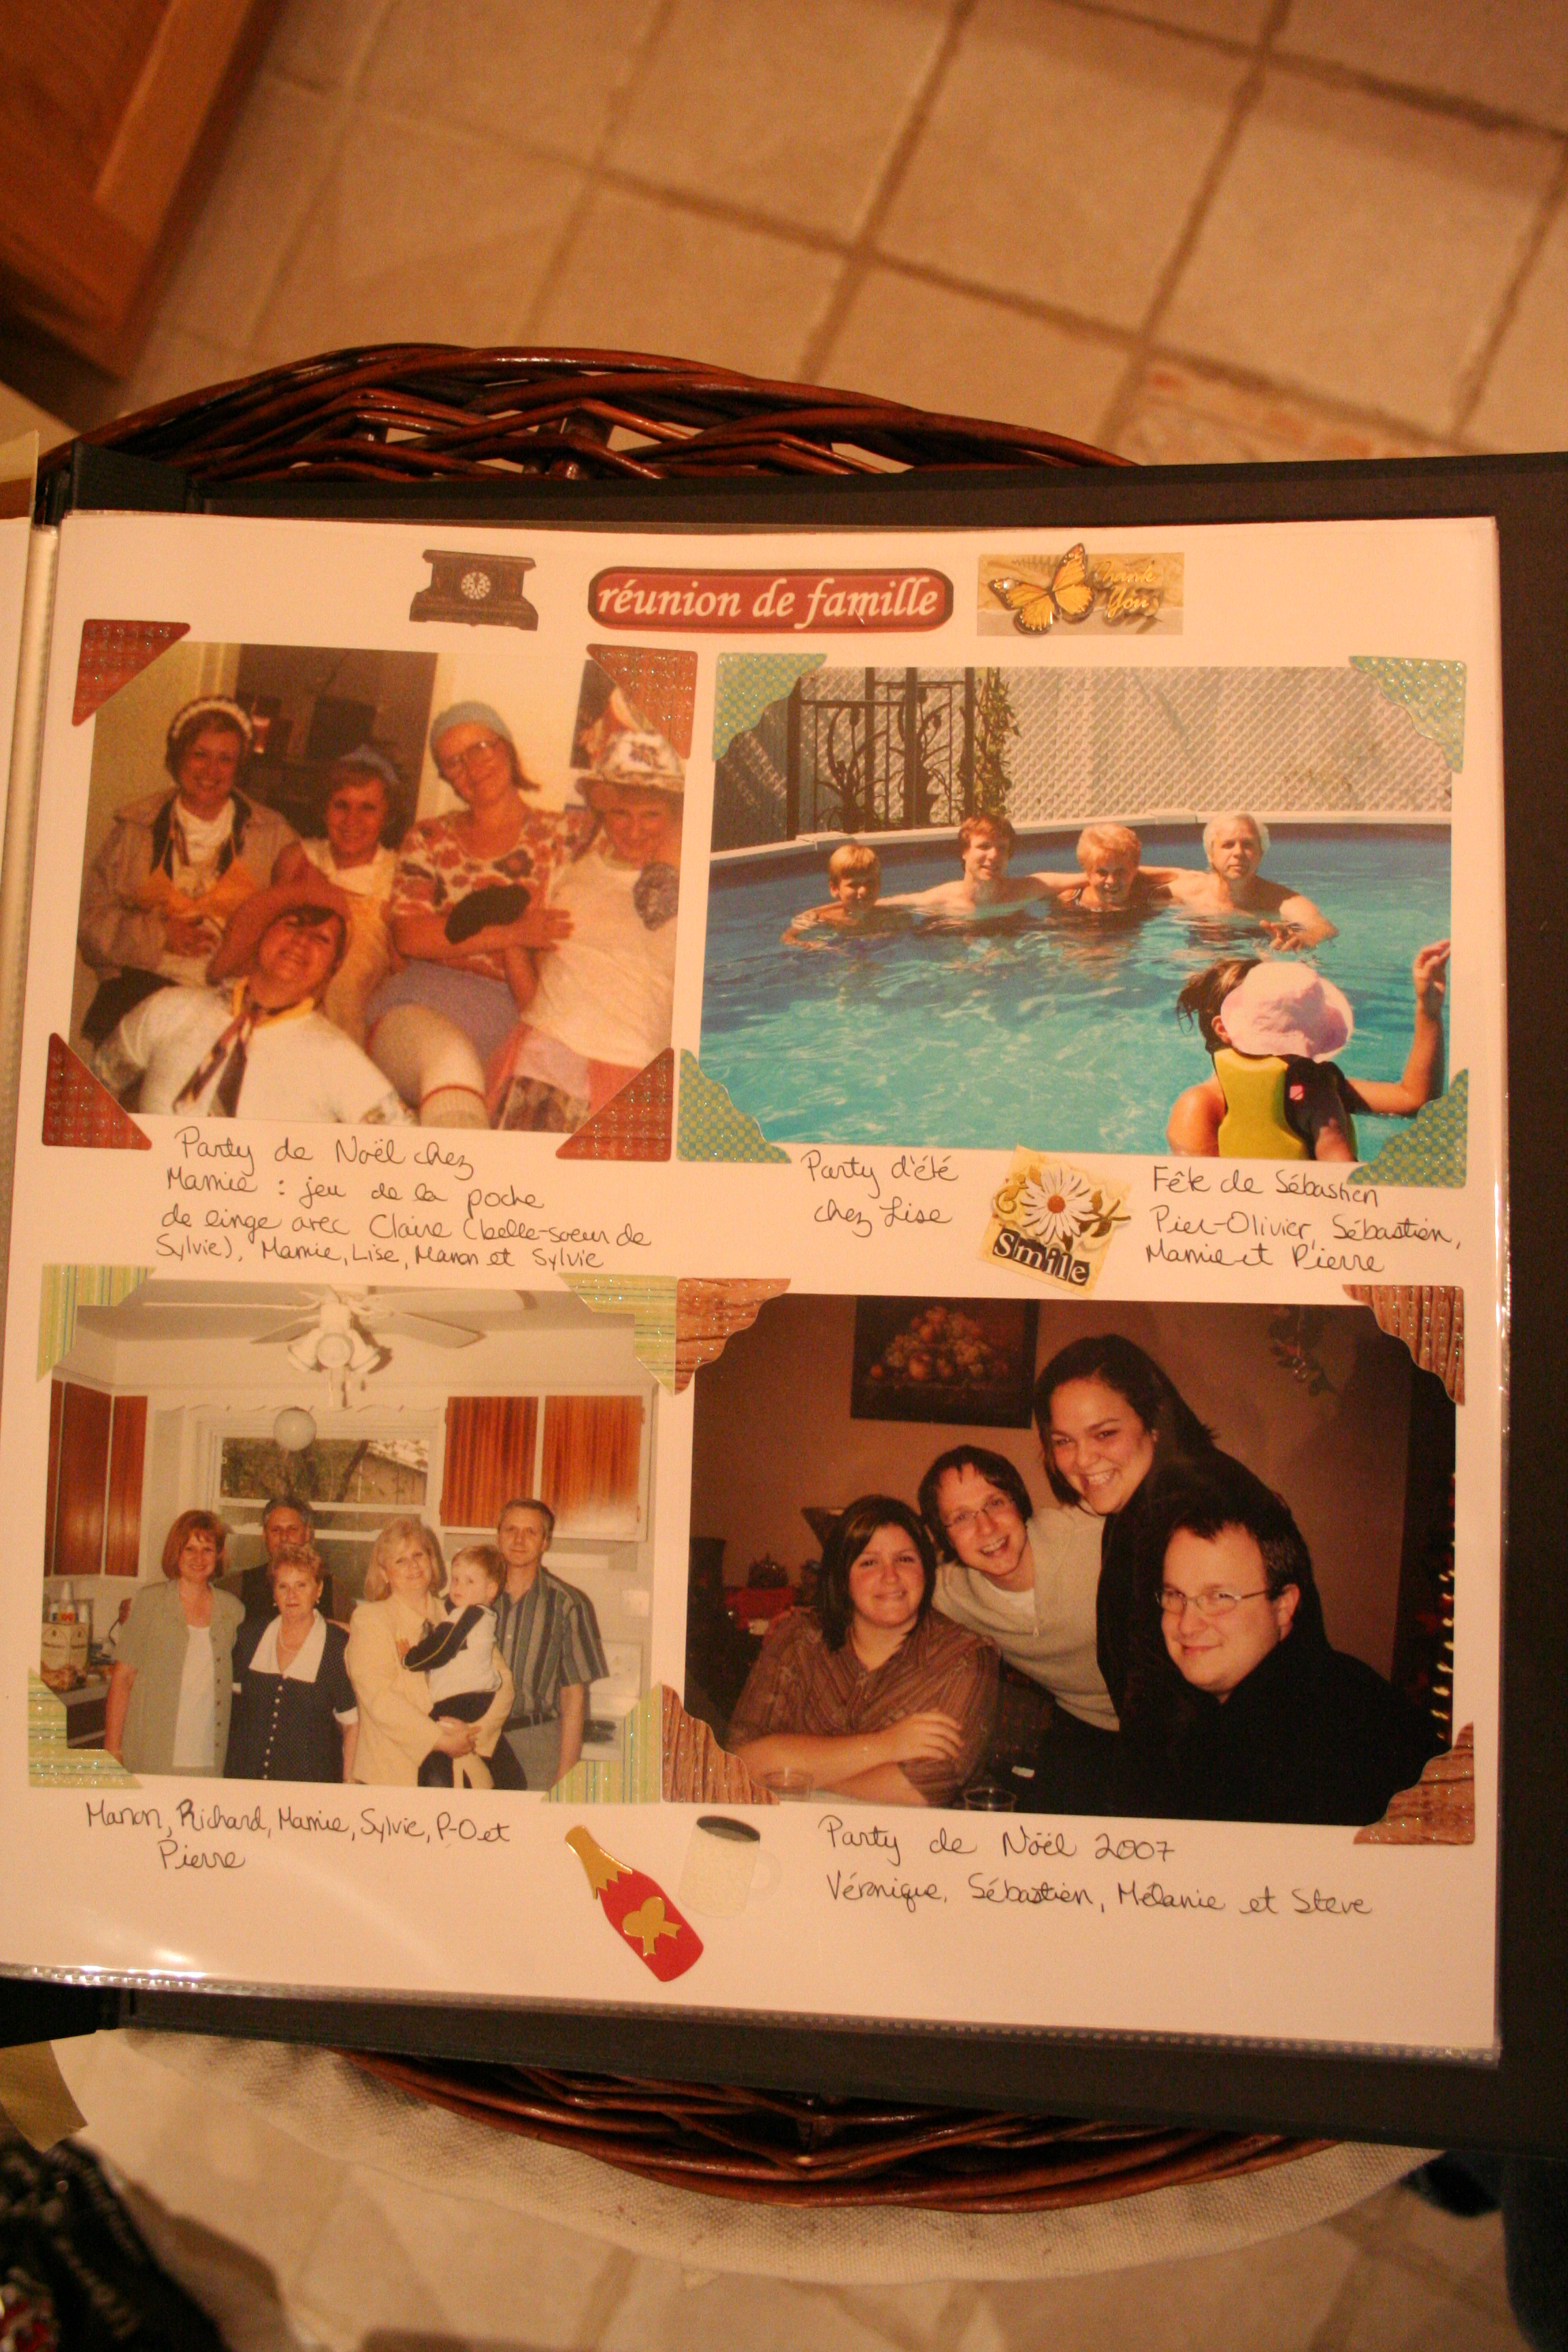 réunion de famille
Thank
You
Party de Noël chez
Mamie : jeu de la poche
de linge avec Claire (belle-soeur de
Sylvie), Mamie, Lise, Manon et Sylvie
Party d'été
chez Lise
Smile
Fête de Sébastien
Pier-Olivier, Sébastien,
Mamie et Pierre
Manon, Richard, Mamie, Sylvie, P-O et
Pierre
Party de Nöel 2007
Véronique, Sébastien, Mélanie et Steve